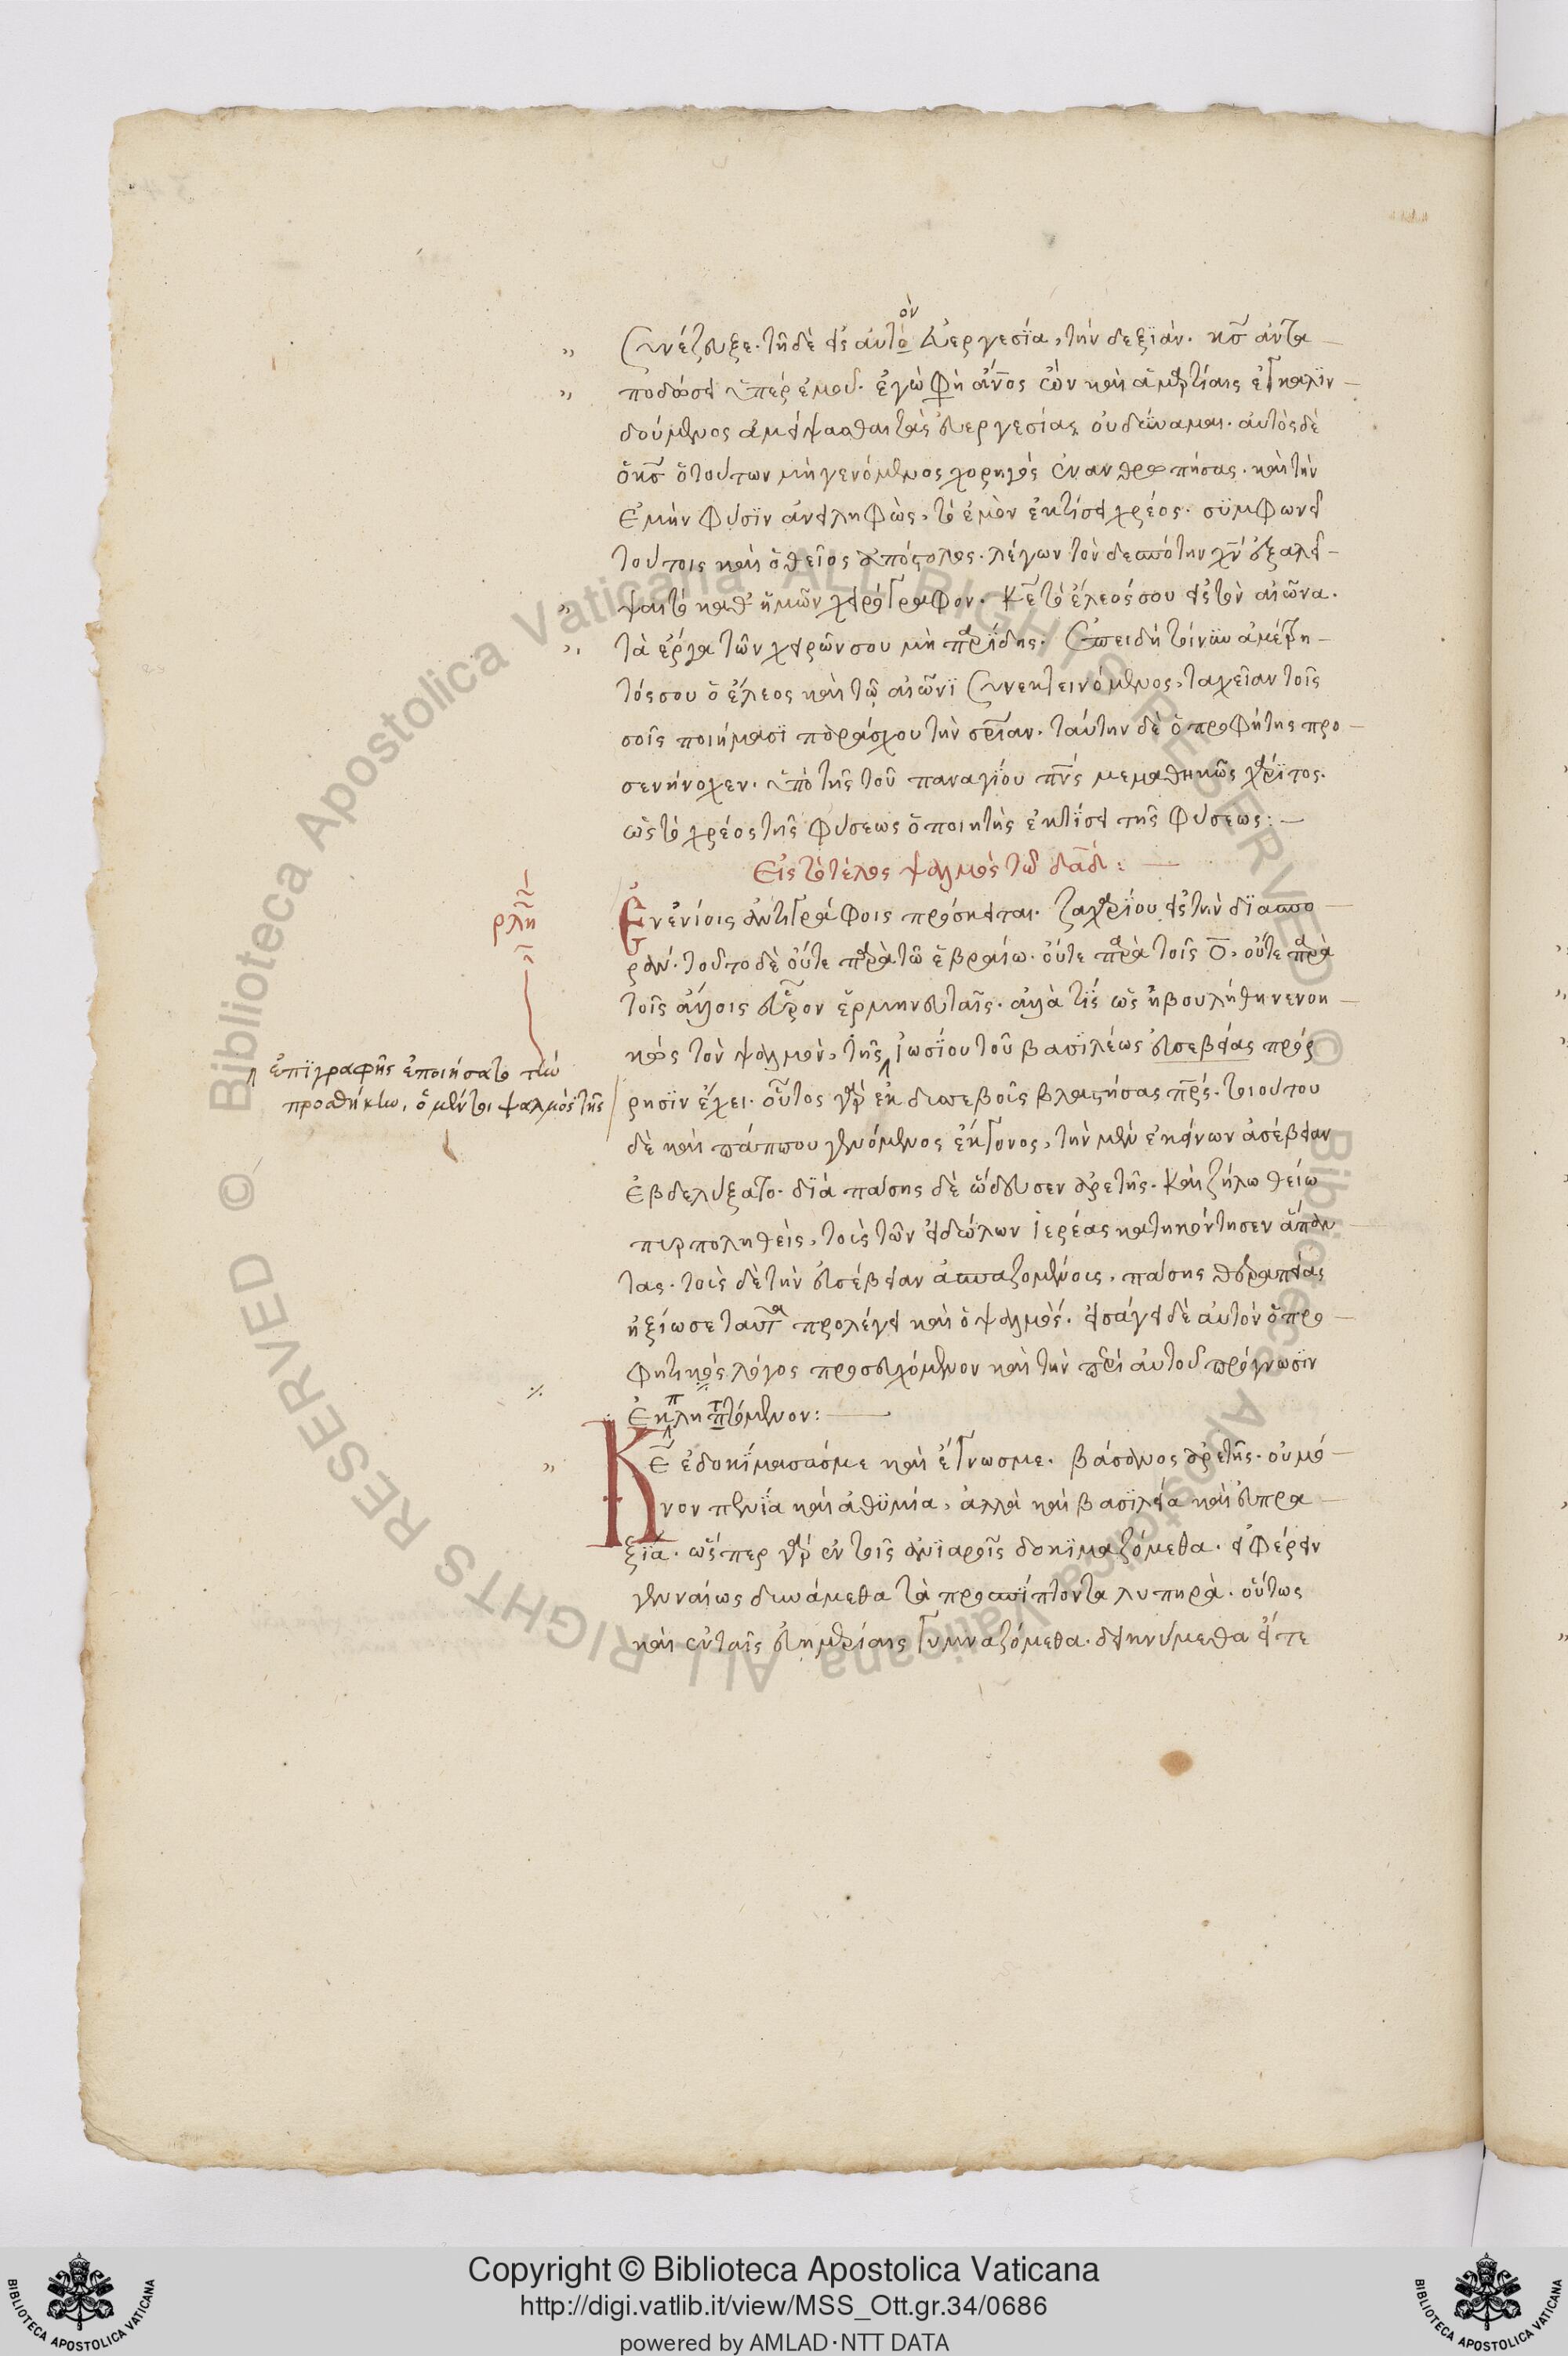 συνέζευξε. τῆ δὲ εἰς αὐτὸν εὐεργεσία, τὴν δεξϊάν. κ̅ς̅ ἀντα
ποδώσει ὑπὲρ ἐμοῦ. ἐγὼ φη ἄν̅ο̅ς ὢν καὶ ἁμαρτίαις ἐγκαλϊν
δούμενος ἀμείψασθαι τὰς εὐεργεσίας οὐ δύναμαι. αὐτὸς δὲ
ὁ κ̅ς̅ ὁ τούτων μὴ γενόμενος χορηγὸς ἐνανθρωπήσας. καὶ τὴν
ἐμὴν φύσϊν ἀνειληφὼς, τὸ ἐμὸν ἐκτίσει χρέος. σϋμφωνεῖ
τούτοις καὶ ὁ θεῖος ἀπόστολος. λέγων τὸν δεσπότην χ̅ν̅ ἐξαλεῖ
ψαι τὸ καθ' ἡμῶν χειρόγραφον. κ̅ε̅ τὸ ἔλεός σου εἰς τὸν αἰῶνα.
τὰ ἔργα τῶν χειρῶν σου μὴ παρΐδης. ἐπειδὴ τοίνυν ἀμέτρη
τός σου ὁ ἔλεος καὶ τῶ αἰῶνϊ συνεκτεινόμενος, ταχεῖαν τοῖς
σοῖς ποιήμασϊ παράσχου τὴν σ̅ρ̅ίαν. ταύτην δὲ ὁ προφήτης προ
σενήνοχεν. ὑπὸ τῆς τοῦ παναγΐου π̅ν̅ς̅ μεμαθηκὼς χάρϊτος.
ὡς τὸ χρέος τῆς φύσεως ὁ ποιητὴς ἐκτΐσει τῆς φύσεως:
Εἰς τὸ τέλος ψαλμὸς τῶ δα̅δ̅:
ρλη
Ἐν ἐνίοις ἀντιγράφοις πρόσκειται. ζαχαρΐου εἰς τὴν δϊασπο
ράν. τοῦτο δὲ οὔτε παρὰ τῶ ἑβραίω. οὔτε παρὰ τοῖς ο̅, οὔτε παρὰ
τοῖς ἄλλοις εὗρον ἑρμηνευταῖς. ἀλλὰ τΐς ὡς ἠβουλήθη νενοη
κὼς τὸν ψαλμὸν, τῆς ἰωσΐου τοῦ βασϊλέως εὐσεβείας πρόρ
ἐπϊγραφῆς ἐποιήσατο τὴν
προσθήκην, ὁ μέντοι ψαλμὸς τῆς
ρησϊν ἔχει. οὗτος γὰρ ἐκ δυσσεβοῦς βλαστήσας π̅ρ̅ς̅. τοιούτου
δὲ καὶ πάππου γενόμενος ἔκγονος, τὴν μὲν ἐκείνων ἀσέβειαν
ἐβδελύξατο. δϊὰ πάσης δὲ ὥδευσεν ἀρετῆς. καὶ ζήλω θείω
πυρποληθεὶς, τοὺς τῶν εἰδώλων ἱερέας κατηκόντησεν ἅπαν
τας. τοὺς δὲ τὴν εὐσέβειαν ἀσπαζομένους, πάσης θεραπείας
ἠξίωσε ταῦτα προλέγει καὶ ὁ ψαλμός. εἰσάγει δὲ αὐτὸν ὁ προ
φητικὸς λόγος προσευχόμενον καὶ τὴν περὶ αὐτοῦ πρόγνωσϊν
ἐκπληττόμενον:
Κ̅ε̅ ἐδοκΐμασάς με καὶ ἔγνως με. βάσανος ἀρετῆς. οὐ μό
νον πενΐα καὶ ἀθϋμία, ἀλλὰ καὶ βασϊλεία καὶ εὐπρα
ξΐα. ὥσπερ γὰρ ἐν τοῖς ἀνϊαροῖς δοκϊμαζόμεθα. εἰ φέρειν
γενναίως δυνάμεθα τὰ προσπΐπτοντα λυπηρά. οὕτως
καὶ ἐν ταῖς εὐημερίαις γυμναζόμεθα. δεικνύμεθα εἴτε
Copyright © Biblioteca Apostolica Vaticana
http://digi.vatlib.it/view/MSS_Ott.gr.34/0686
powered by AMLAD·NTT DATA